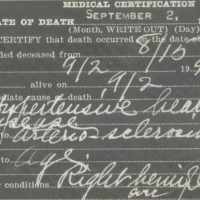 MEDICAL CERTIFICATION
SEPTEMBER 2,
ATE OF DEATH
(Month, WRITE OUT) (Day)
CERTIFY that death occurred on the date
ded deceased from 8/15
9/2 19
alive on 9/2
iate cause of death
hypertensive hear
disease
to arterio sclerosis
to age
r conditions Right hemi